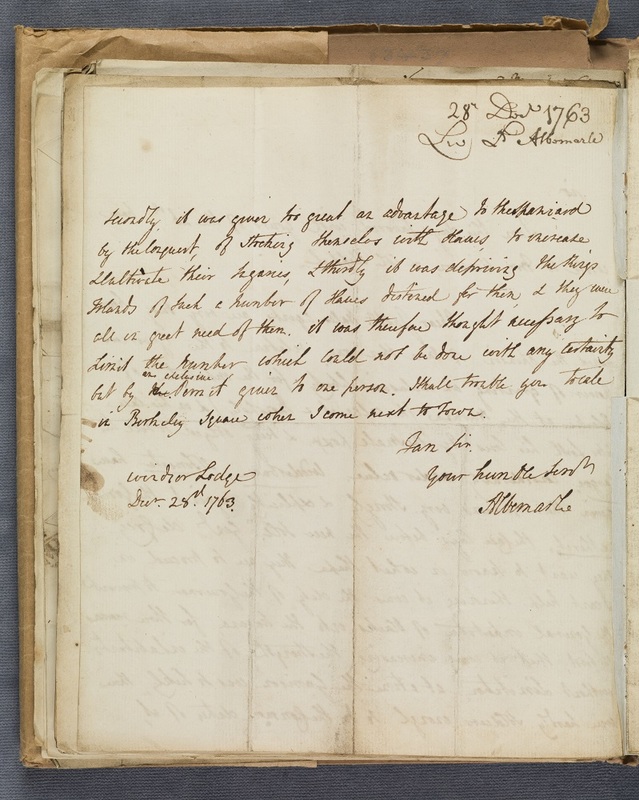 28th Decr 1763
Ld Albemarle
Secondly it was given too great an advantage to the Spaniard
by the Conquest, of Stocking themselves with Slaves to increase
& Cultivate their Sugaries, & thirdly it was depriving the Kings
Islands of such a number of Slaves destined for them & they were
all in great need of them. it was therefore thought necessary to
Limit the Number which could not be done with any Certainty
but by an exclusive Permit given to one person. I shall trouble you to call
in Berkeley Square when I come next to Town.
I am Sir.
Your humble Servt
Albemarle
Windsor Lodge
Decr. 28th 1763.